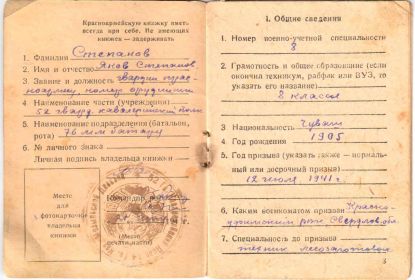 Красноармейскую книжку иметь
всегда при себе. Не имеющих
книжек — задерживать
1. Фамилия Степанов
2. Имя и отчество Яков Степанов
3. Звание и должность гвардии
номер орудийный
4. Наименование части (учреждения)
52 гвард. кавалерийский полк
5. Наименование подразделения (батальон,
рота) 76 мм батарея
6. № личного знака
Личная подпись владельца книжки
Место
для
фотокарточки
владельца
книжки
Командир
(Место
печати)
I. Общие сведения
1. Номер военно-учетной специальности
8
2. Грамотность и общее образование (если
окончил техникум, рабфак или ВУЗ, то
указать его название)
2 класса
3. Национальность Чуваш
4. Год рождения 1905
5. Год призыва (указать также — нормаль-
ный или досрочный призыв)
12 июля 1941 г.
6. Каким военкоматом призван Красно-
уфимским рвк Свердлов. обл
7. Специальность до призыва
техник лесозаготовок
3